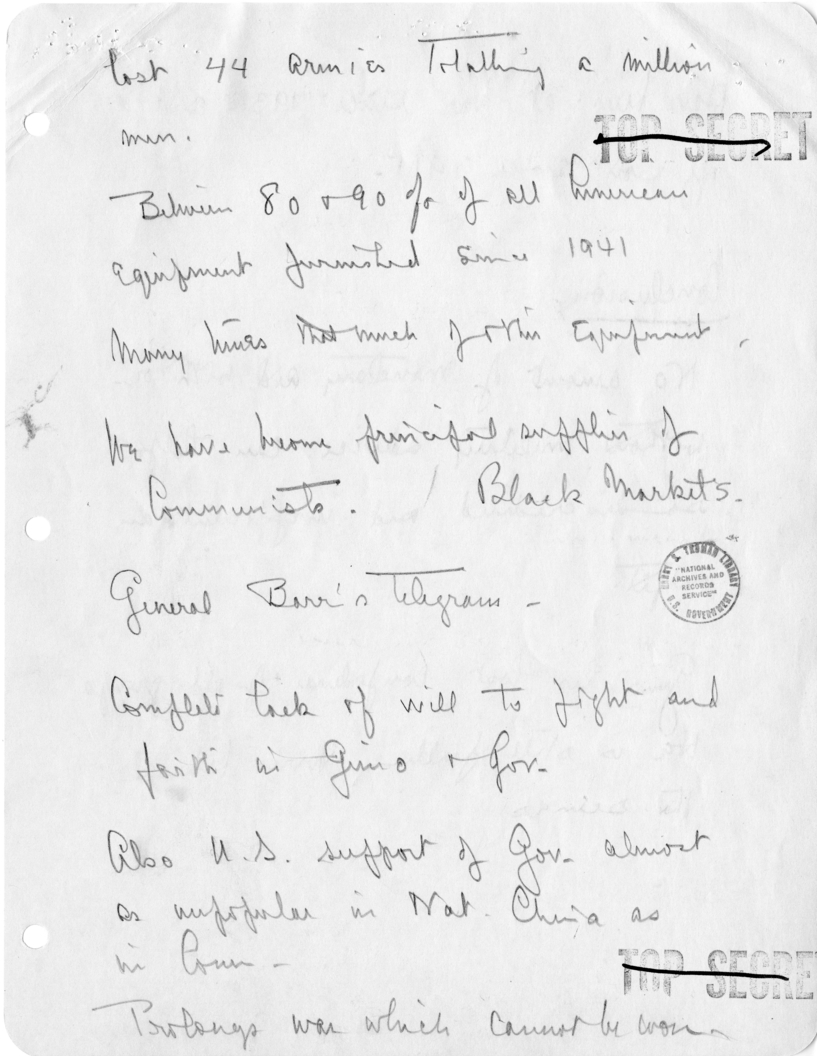 lost 44 armies Totalling a million
TOP SECRET
men.
Between 80 & 90 % of all American
Equipment furnished since 1941
Many times that much of other Equipment.
We have become principal supplier of
Communists. Black Markets.
HARRY S. TRUMAN LIBRARY
"NATIONAL
ARCHIVES AND
RECORDS
SERVICE"
U.S. GOVERNMENT
General Barr's Telegram -
Complete lack of will to fight and
faith in Gimo & Gov.
Also U.S. support of Gov. almost
as unpopular in Nat. China as
in Comm -
TOP SECRE
Prolongs war which cannot be won.